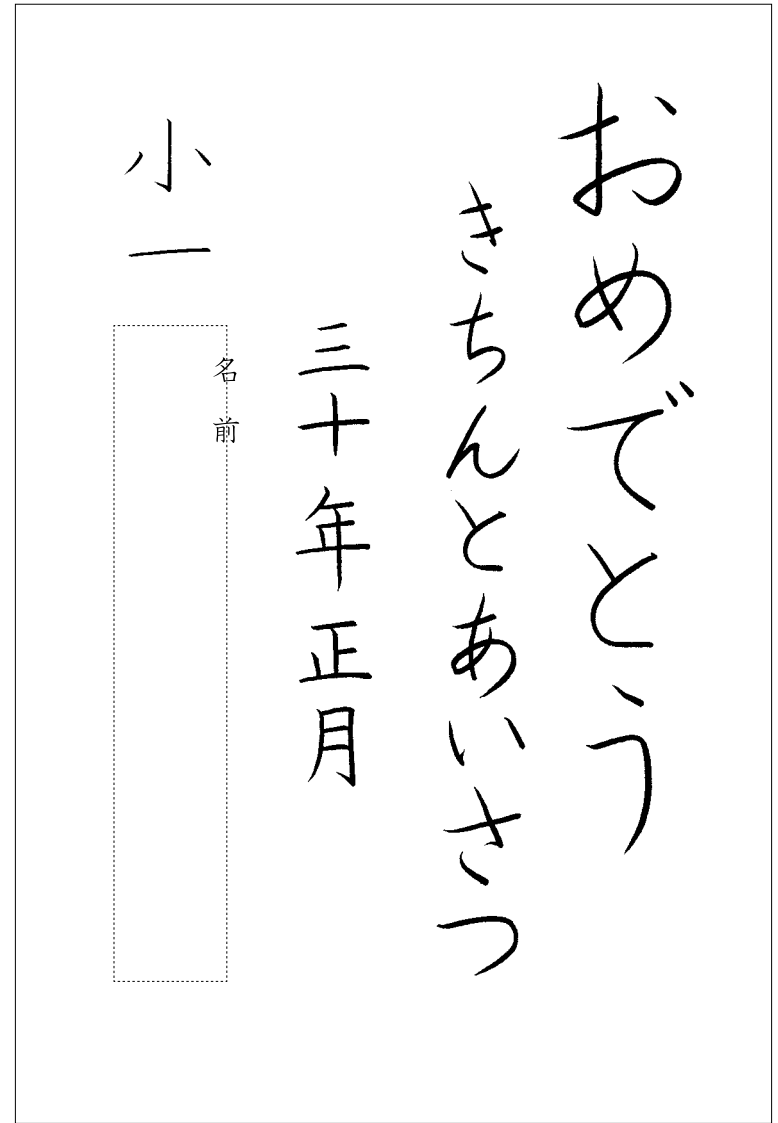 おめでとう
きちんとあいさつ
三十年正月
小一
名前